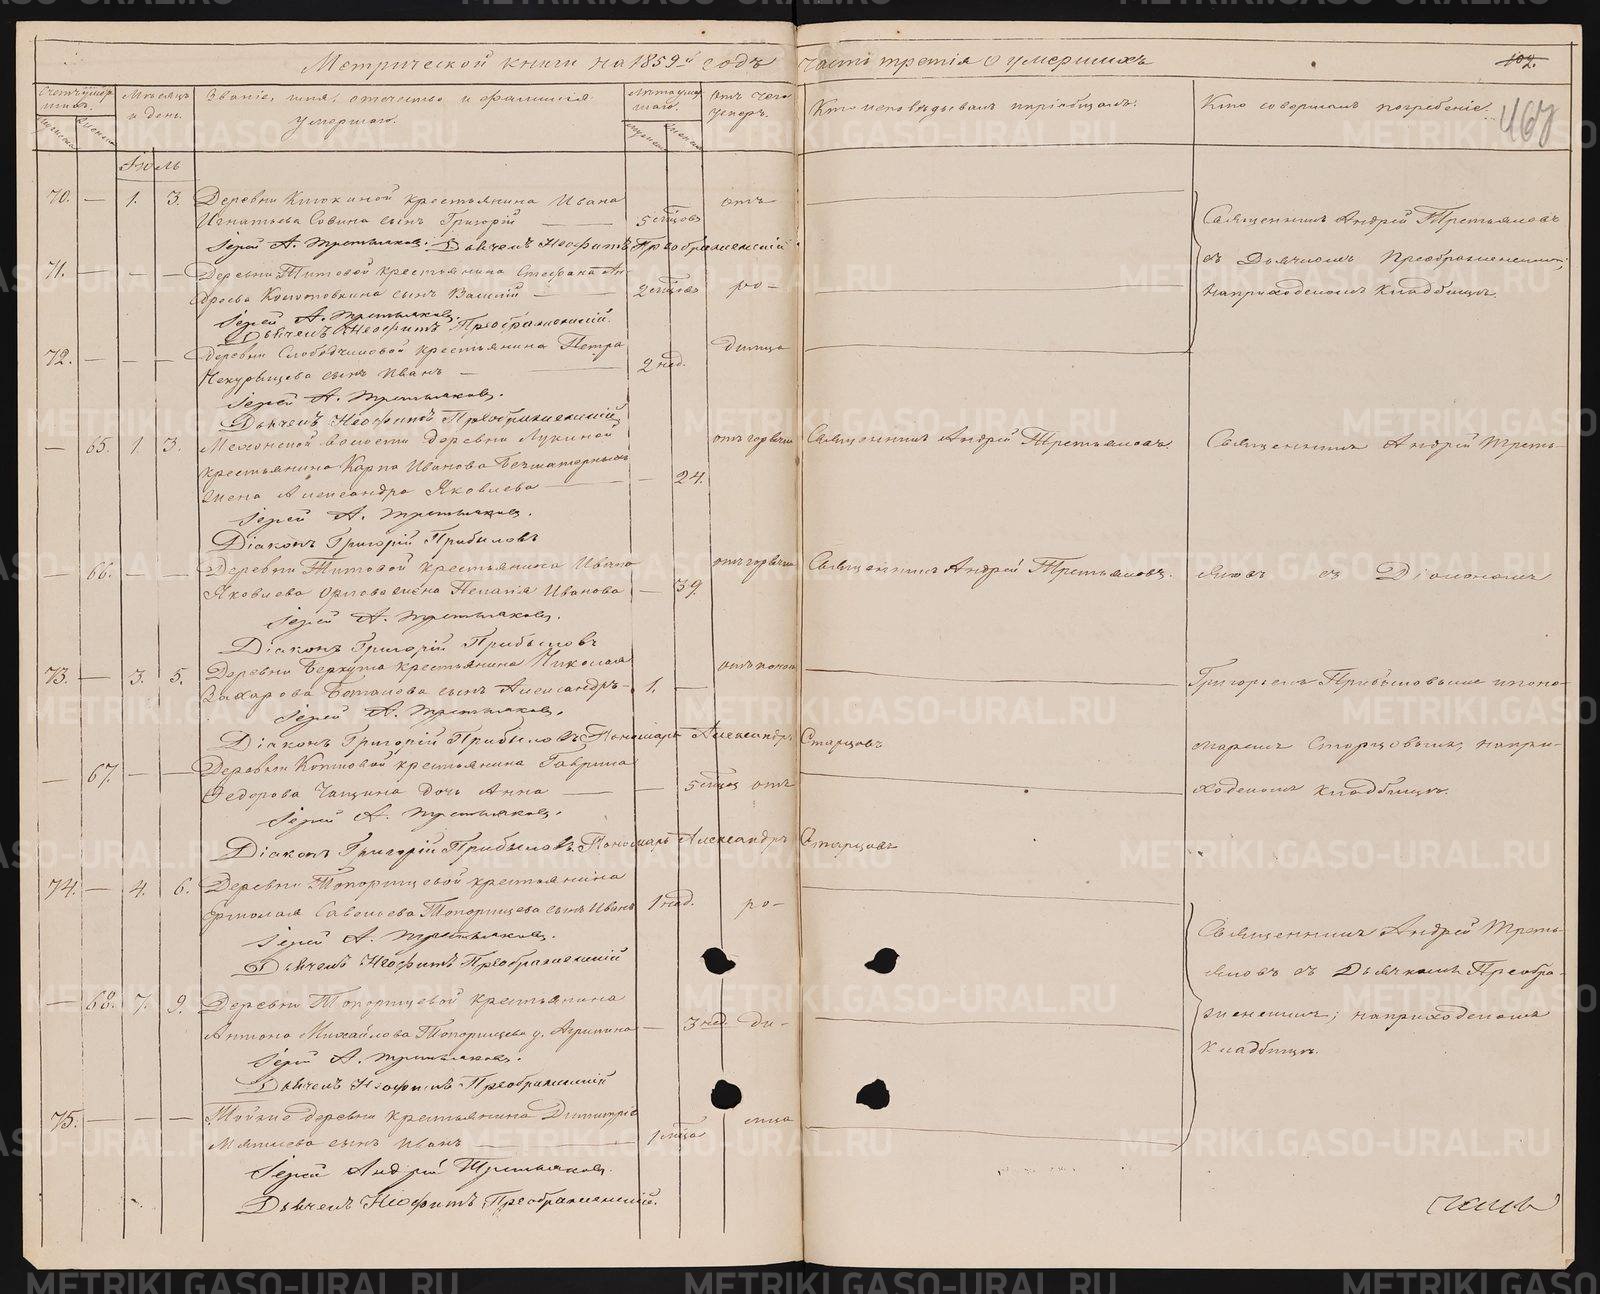 Метрической книги на 1859й годъ часть третія о умершихъ
102.
467
Счетъ умер-
шихъ.
Мѣсяцъ
и день.
Званіе, имя, отчество и фамилія
умершаго.
Лѣта умер-
шаго.
Отъ чего
умеръ.
Кто исповѣдывалъ и пріобщалъ.
Кто совершалъ погребеніе.
Іюль
70. — 1. 3. Деревни крестьянина Ивана отъ
Игнатьева Савина сынъ Григорій — 5 мцовъ
Іерей А. Третьяковъ. Дьячекъ Неофитъ Преображенскій.
Священникъ Андрей Третьяковъ
съ Дьячкомъ Преображенскимъ,
на приходскомъ кладбищѣ.
71. — — — Деревни Титовой крестьянина Стефана Ан-
дреева сынъ Василій — 2 мцовъ ро-
Іерей А. Третьяковъ.
Дьячекъ Неофитъ Преображенскій.
72. — — — Деревни Слободчиковой крестьянина Петра димца
сынъ Иванъ — 2 нед.
Іерей А. Третьяковъ.
Дьячекъ Неофитъ Преображенскій
— 65. 1. 3. Мехонской волости деревни Лукиной отъ горячки Священникъ Андрей Третьяковъ. Священникъ Андрей Треть-
крестьянина Карпа Иванова
жена Александра Яковлева — — 24.
Іерей А. Третьяковъ.
Діаконъ Григорій Прибыловъ
— 66. — — Деревни Титовой крестьянина Ивана отъ горячки Священникъ Андрей Третьяковъ. яковъ съ Діакономъ
Яковлева Орлова жена Пелагія Иванова — 39.
Іерей А. Третьяковъ.
Діаконъ Григорій Прибыловъ
73. — 3. 5. Деревни Беркута крестьянина Николая отъ
Захарова сынъ Александръ — 1. —
Григорьемъ Прибыловымъ и поно-
Іерей А. Третьяковъ.
Діаконъ Григорій Прибыловъ. Пономарь Александръ Старцовъ
маремъ Старцовымъ, на при-
— 67. — — Деревни Котовой крестьянина Гаврила
Федорова Чащина дочь Анна — — 5 мцов отъ
ходскомъ кладбищѣ.
Іерей А. Третьяковъ.
Діаконъ Григорій Прибыловъ. Пономарь Александръ Старцовъ
74. — 4. 6. Деревни Топорищевой крестьянина
Ермолая Савельева Топорищева сынъ Иванъ 1 нед. ро-
Іерей А. Третьяковъ.
Дьячекъ Неофитъ Преображенскій
Священникъ Андрей Треть-
яковъ съ Дьячкомъ Преобра-
женскимъ; на приходскомъ
кладбищѣ.
— 68. 7. 9. Деревни Топорищевой крестьянина
Антона Михайлова Топорищева д. Агрипина — 3 нед. ди-
Іерей А. Третьяковъ.
Дьячекъ Неофитъ Преображенскій
75. — — — Тойже деревни крестьянина Димитрія мца
сынъ Иванъ — 1 мца
Іерей Андрей Третьяковъ.
Дьячекъ Неофитъ Преображенскій.
METRIKI.GASO-URAL.RU